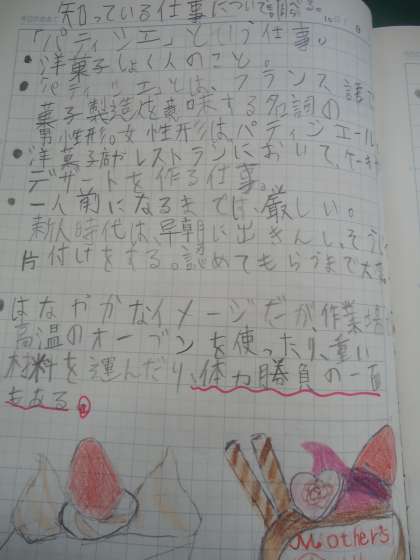 知っている仕事について調べる。
「パティシエ」という仕事。
・洋菓子しょく人のこと。
・「パティシエ」とは、フランス語で
菓子製造人を意味する名詞の
男性形。女性形はパティシエール。
・洋菓子店やレストランにおいて、ケーキや
デザートを作る仕事。
・一人前になるまでは、厳しい。
新人時代は、早朝に出きんし、そうじ
片付けをする。認めてもらうまで大変
・はなやかなイメージだが、作業場で
高温のオーブンを使ったり、重い
材料を運んだり、体力勝負の一面
もある。
Mother's